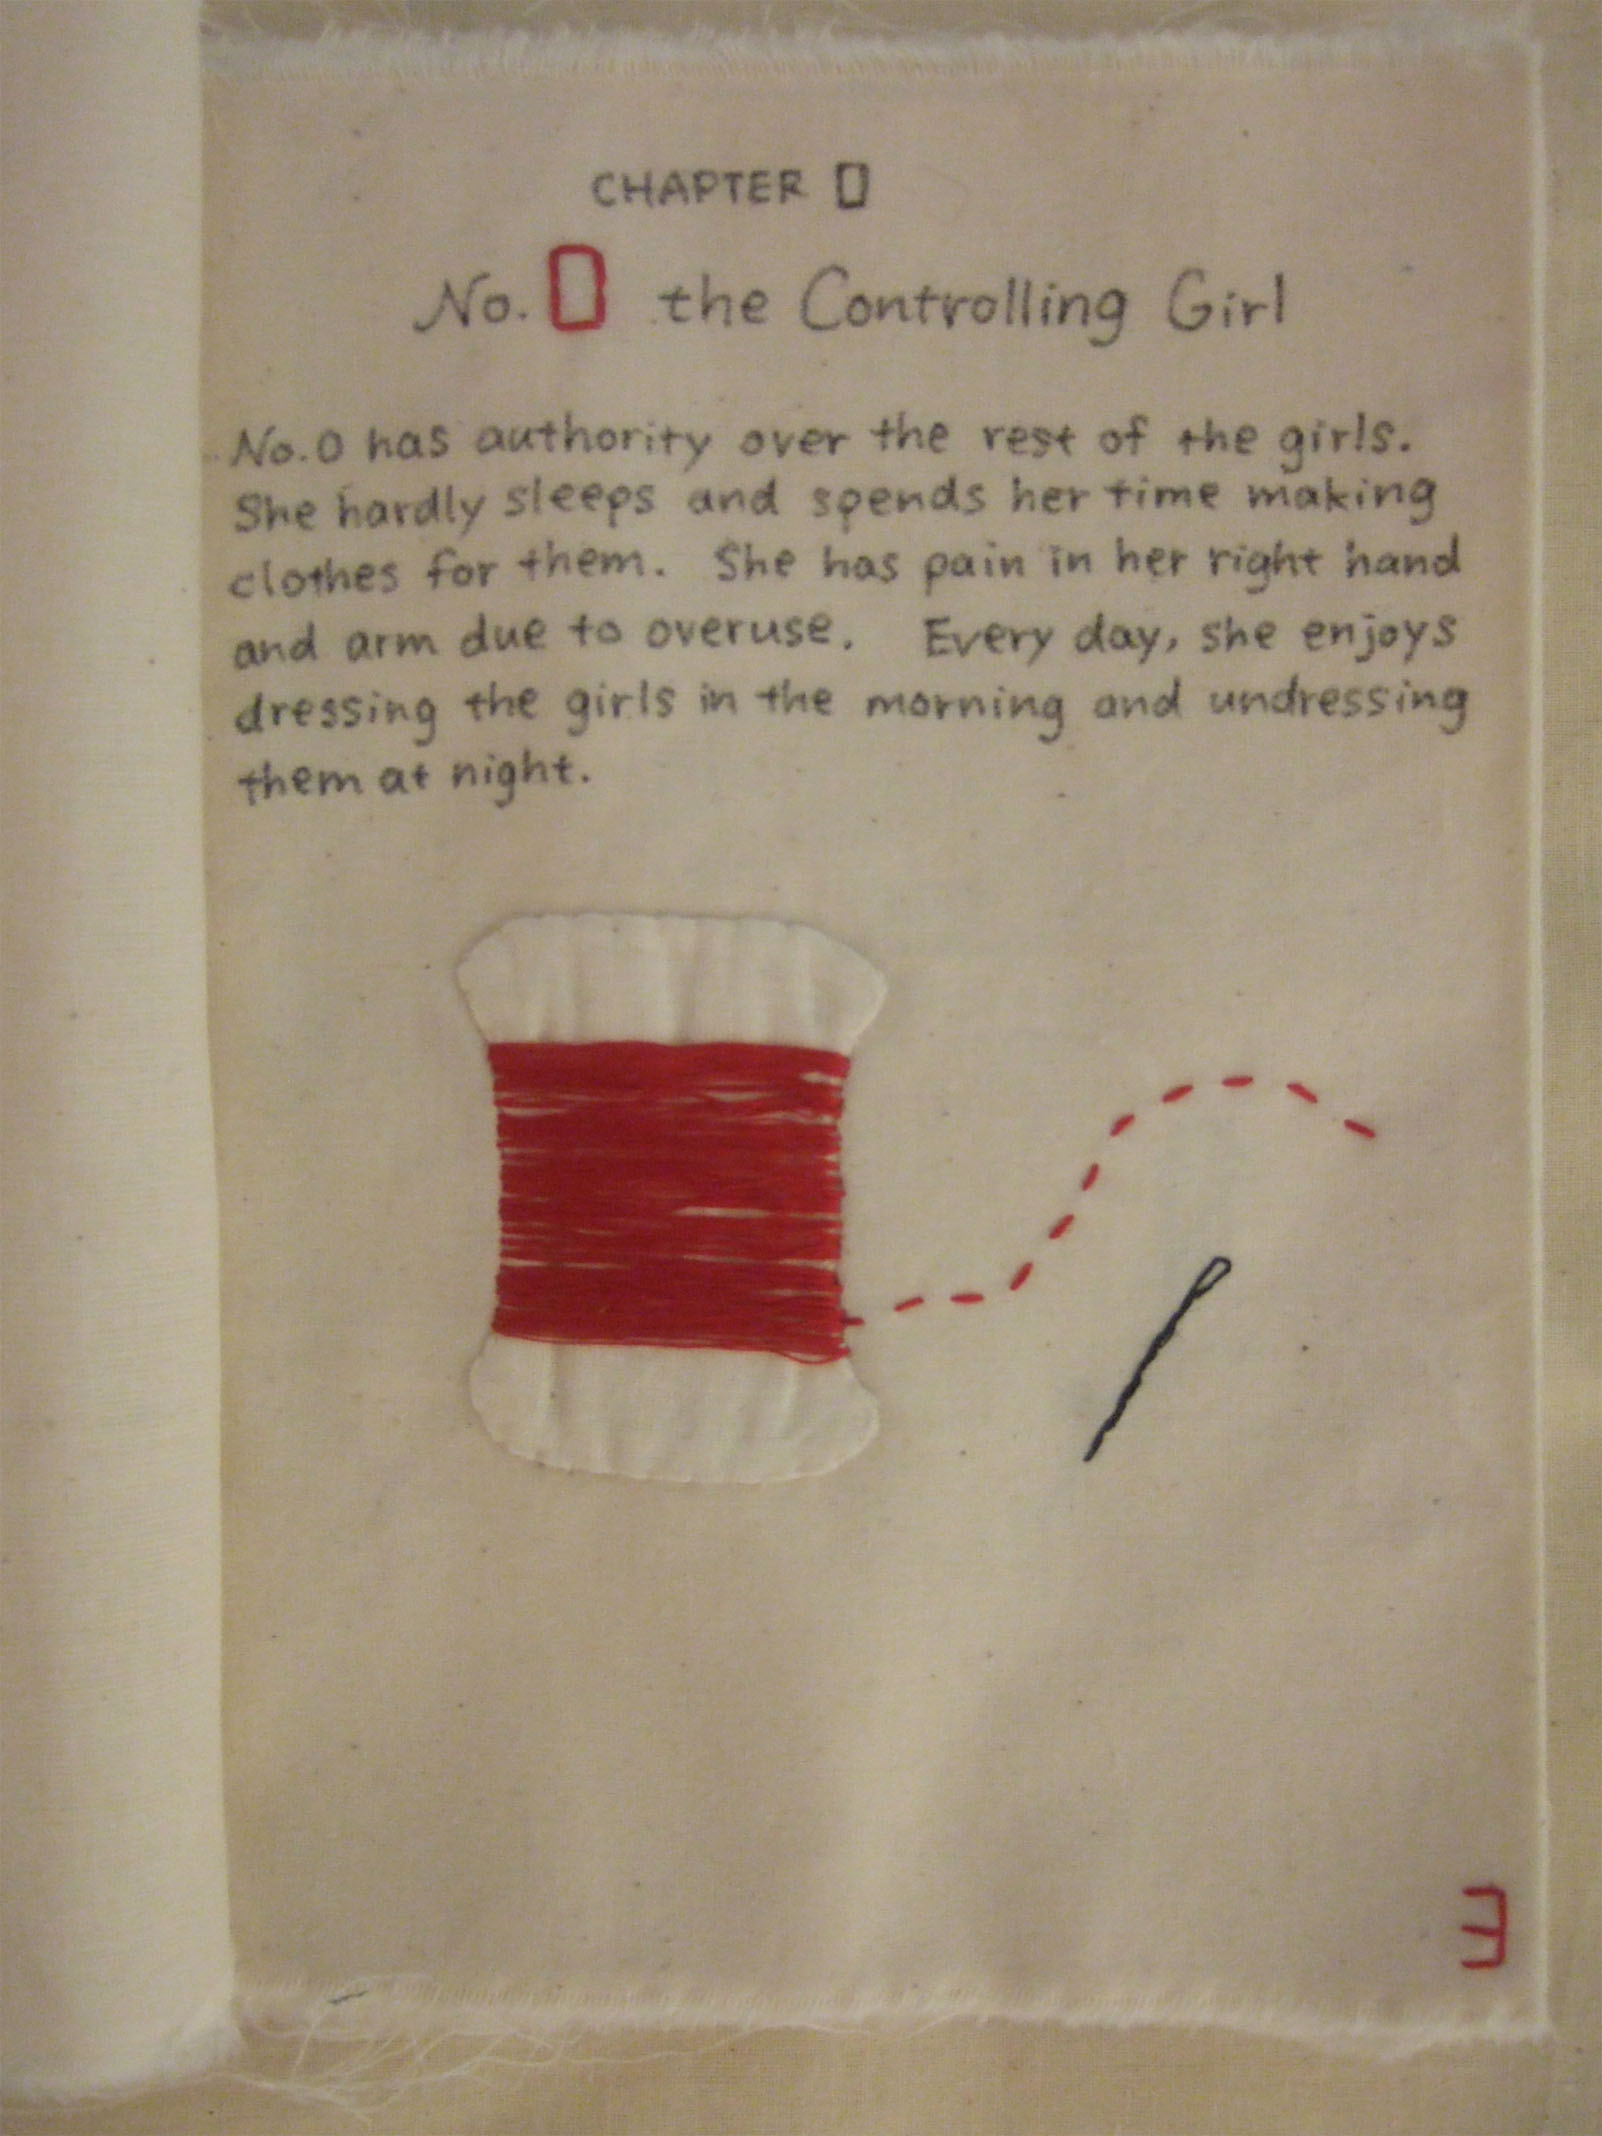 CHAPTER 0
No. 0 the Controlling Girl
No. 0 has authority over the rest of the girls.
She hardly sleeps and spends her time making
clothes for them. She has pain in her right hand
and arm due to overuse. Every day, she enjoys
dressing the girls in the morning and undressing
them at night.
3